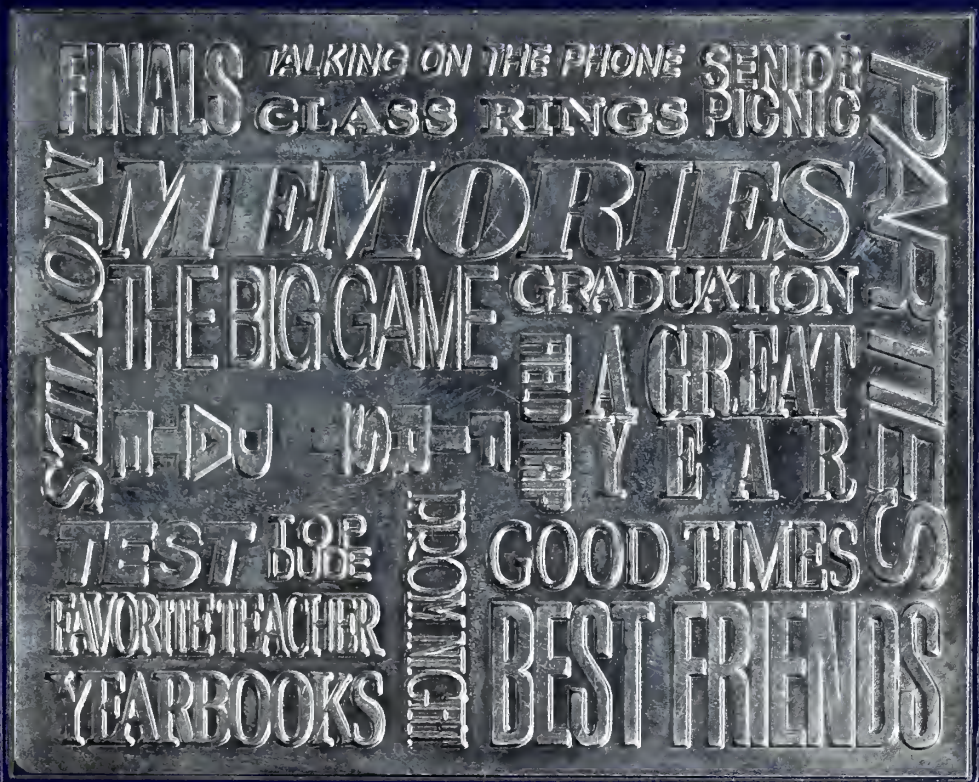 FINALS
TALKING ON THE PHONE
CLASS RINGS
SENIOR
PICNIC
PARTIES
MOVIES
MEMORIES
THE BIG GAME
GRADUATION
FIELD TRIP
A GREAT
YEAR
FIRST DATE
TEST
TOP
DUDE
PROM NIGHT
GOOD TIMES
FAVORITE TEACHER
BEST FRIENDS
YEARBOOKS